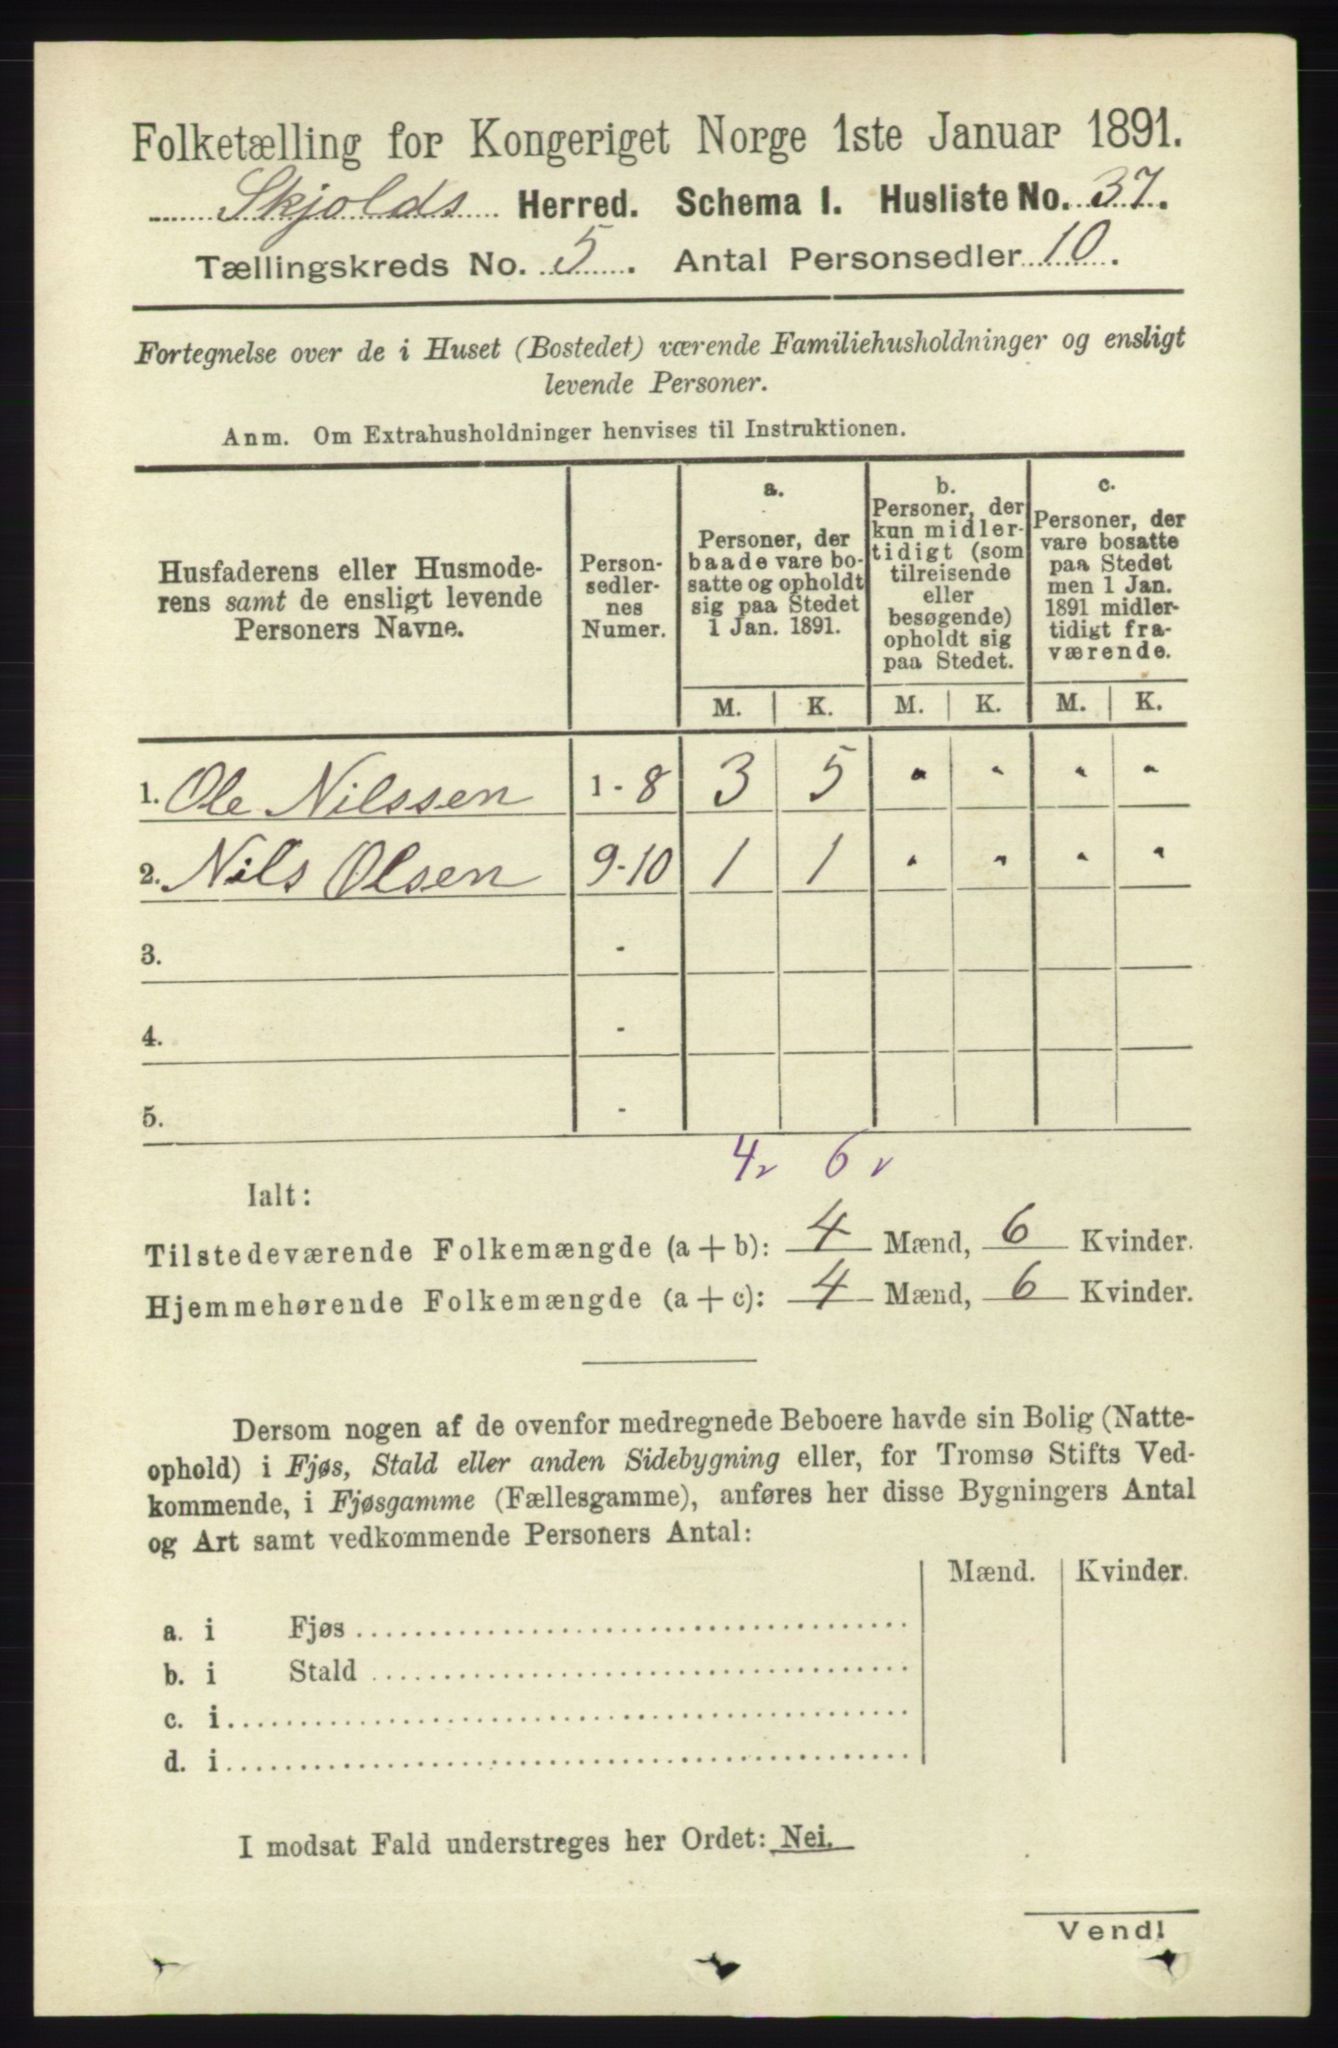 Folketælling for Kongeriget Norge 1ste Januar 1891.
Skjolds Herred. Schema I. Husliste No. 37.
Tællingskreds No. 5. Antal Personsedler 10.
Fortegnelse over de i Huset (Bostedet) værende Familiehusholdninger og ensligt
levende Personer.
Anm. Om Extrahusholdninger henvises til Instruktionen.
Husfaderens eller Husmode-
rens samt de ensligt levende
Personers Navne.
Person-
sedler-
nes
Numer.
a.
Personer, der
baade vare bo-
satte og opholdt
sig paa Stedet
1 Jan. 1891.
b.
Personer, der
kun midler-
tidigt (som
tilreisende
eller
besøgende)
opholdt sig
paa Stedet.
c.
Personer, der
vare bosatte
paa Stedet
men 1 Jan.
1891 midler-
tidigt fra-
værende.
M. K. M. K. M. K.
1. Ole Nilssen 1-8 3 5 " " " "
2. Nils Olsen 9-10 1 1 " " " "
3. -
4. -
5. -
4 v 6 v
Ialt:
Tilstedeværende Folkemængde (a + b): 4 Mænd, 6 Kvinder.
Hjemmehørende Folkemængde (a + c): 4 Mænd, 6 Kvinder.
Dersom nogen af de ovenfor medregnede Beboere havde sin Bolig (Natte-
ophold) i Fjøs, Stald eller anden Sidebygning eller, for Tromsø Stifts Ved-
kommende, i Fjøsgamme (Fællesgamme), anføres her disse Bygningers Antal
og Art samt vedkommende Personers Antal:
Mænd. Kvinder.
a. i Fjøs
b. i Stald
c. i
d. i
I modsat Fald understreges her Ordet: Nei.
Vend!